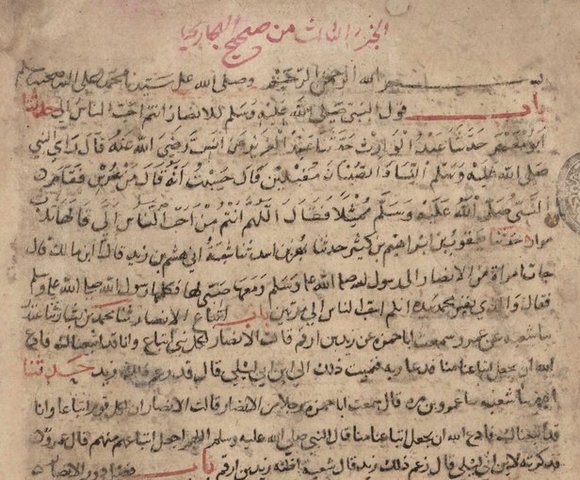 الجزء الثالث من صحيح البخاري
بسم الله الرحمن الرحيم وصلى الله على سيدنا محمد صلى الله وسلم
باب قول النبي صلى الله عليه وسلم للانصار انتم احب الناس الي حدثنا
ابو معمر حدثنا عبد الوارث حدثنا عبد العزيز عن انس رضي الله عنه قال راي النبي
صلى الله عليه وسلم النساء والصبيان مقبلين قال حسبت انه قال من عرس فقام
النبي صلى الله عليه وسلم ممثلا فقال اللهم انتم من احب الناس الي قالها ثلاث
مرار حدثنا يعقوب بن ابراهيم بن كثير حدثنا بهز بن اسد ثنا شعبة هشام بن زيد قال ابن مالك قال
جات امراة من الانصار الى رسول الله صلى الله عليه وسلم ومعها صبي لها فكلمها رسول الله صلى الله عليه وسلم
فقال والذي نفسي بيده انكم احب الناس الي مرتين باب اتباع الانصار ثنا محمد بن بشار ثنا غندر
ثنا شعبة عن عمرو سمعت ابا حمزة عن زيد بن ارقم قالت الانصار لكل نبي اتباع وانا قد اتبعناك فادع
الله ان يجعل اتباعنا منا فدعا به فنميت ذلك الى ابن ابي ليلى قال قد زعم ذلك زيد حدثنا
ادم ثنا شعبة ثنا عمرو بن مرة قال سمعت ابا حمزة رجلا من الانصار قالت الانصار ان لكل قوم اتباعا وانا
قد اتبعناك فادع الله ان يجعل اتباعنا منا قال النبي صلى الله عليه وسلم اللهم اجعل اتباعهم منهم قال عمرو
فذكرته لابن ابي ليلى قال زعم ذلك زيد قال شعبة اظنه زيد بن ارقم باب فضل دور الانصار